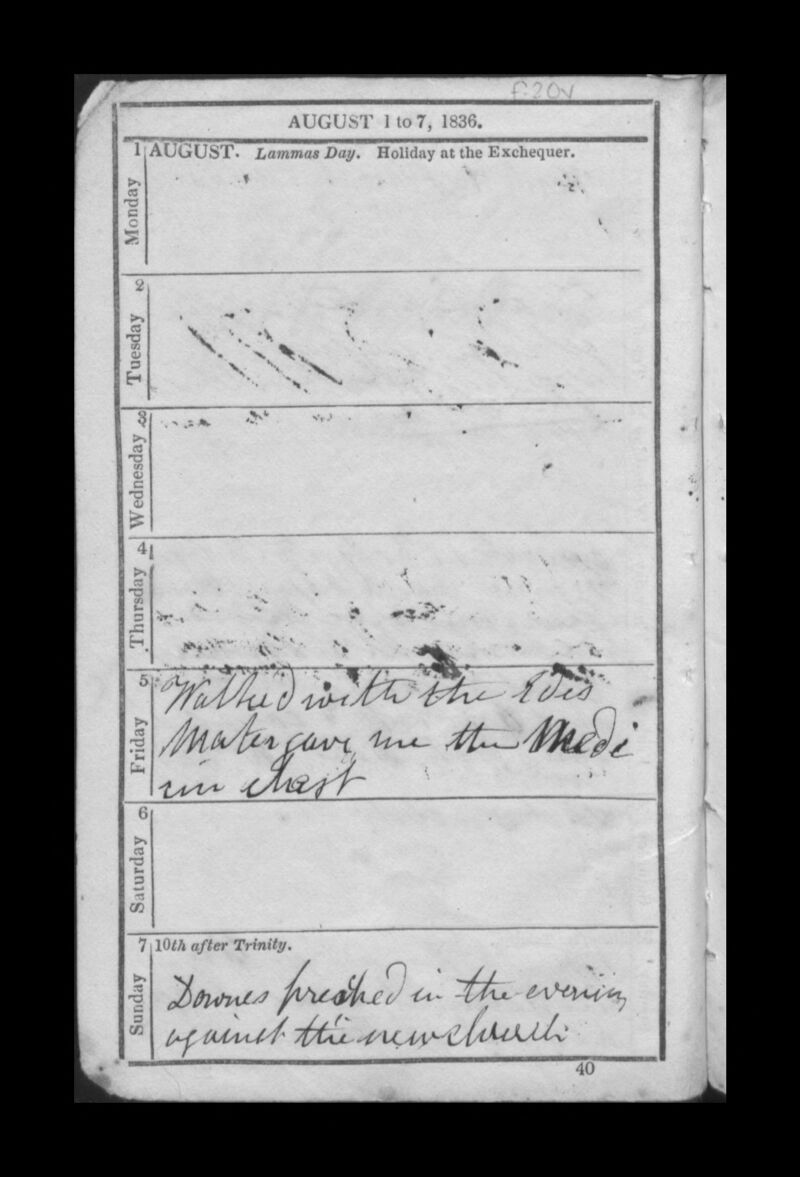 f.20v
AUGUST 1 to 7, 1836.
1 AUGUST. Lammas Day. Holiday at the Exchequer.
Monday
2
Tuesday
3
Wednesday
4
Thursday
5
Friday
Walked with the Edes
Mater gave me the Medi
cin chest
6
Saturday
7 10th after Trinity.
Sunday
Downes preched in the evening
against the new church
40